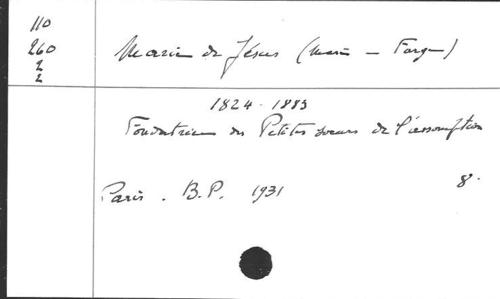 110
260
2
2
Marie de Jésus (Marie -
1824-1883
Fondatrice des Petites soeurs de l'assomption
Paris. B.P. 1931 8.